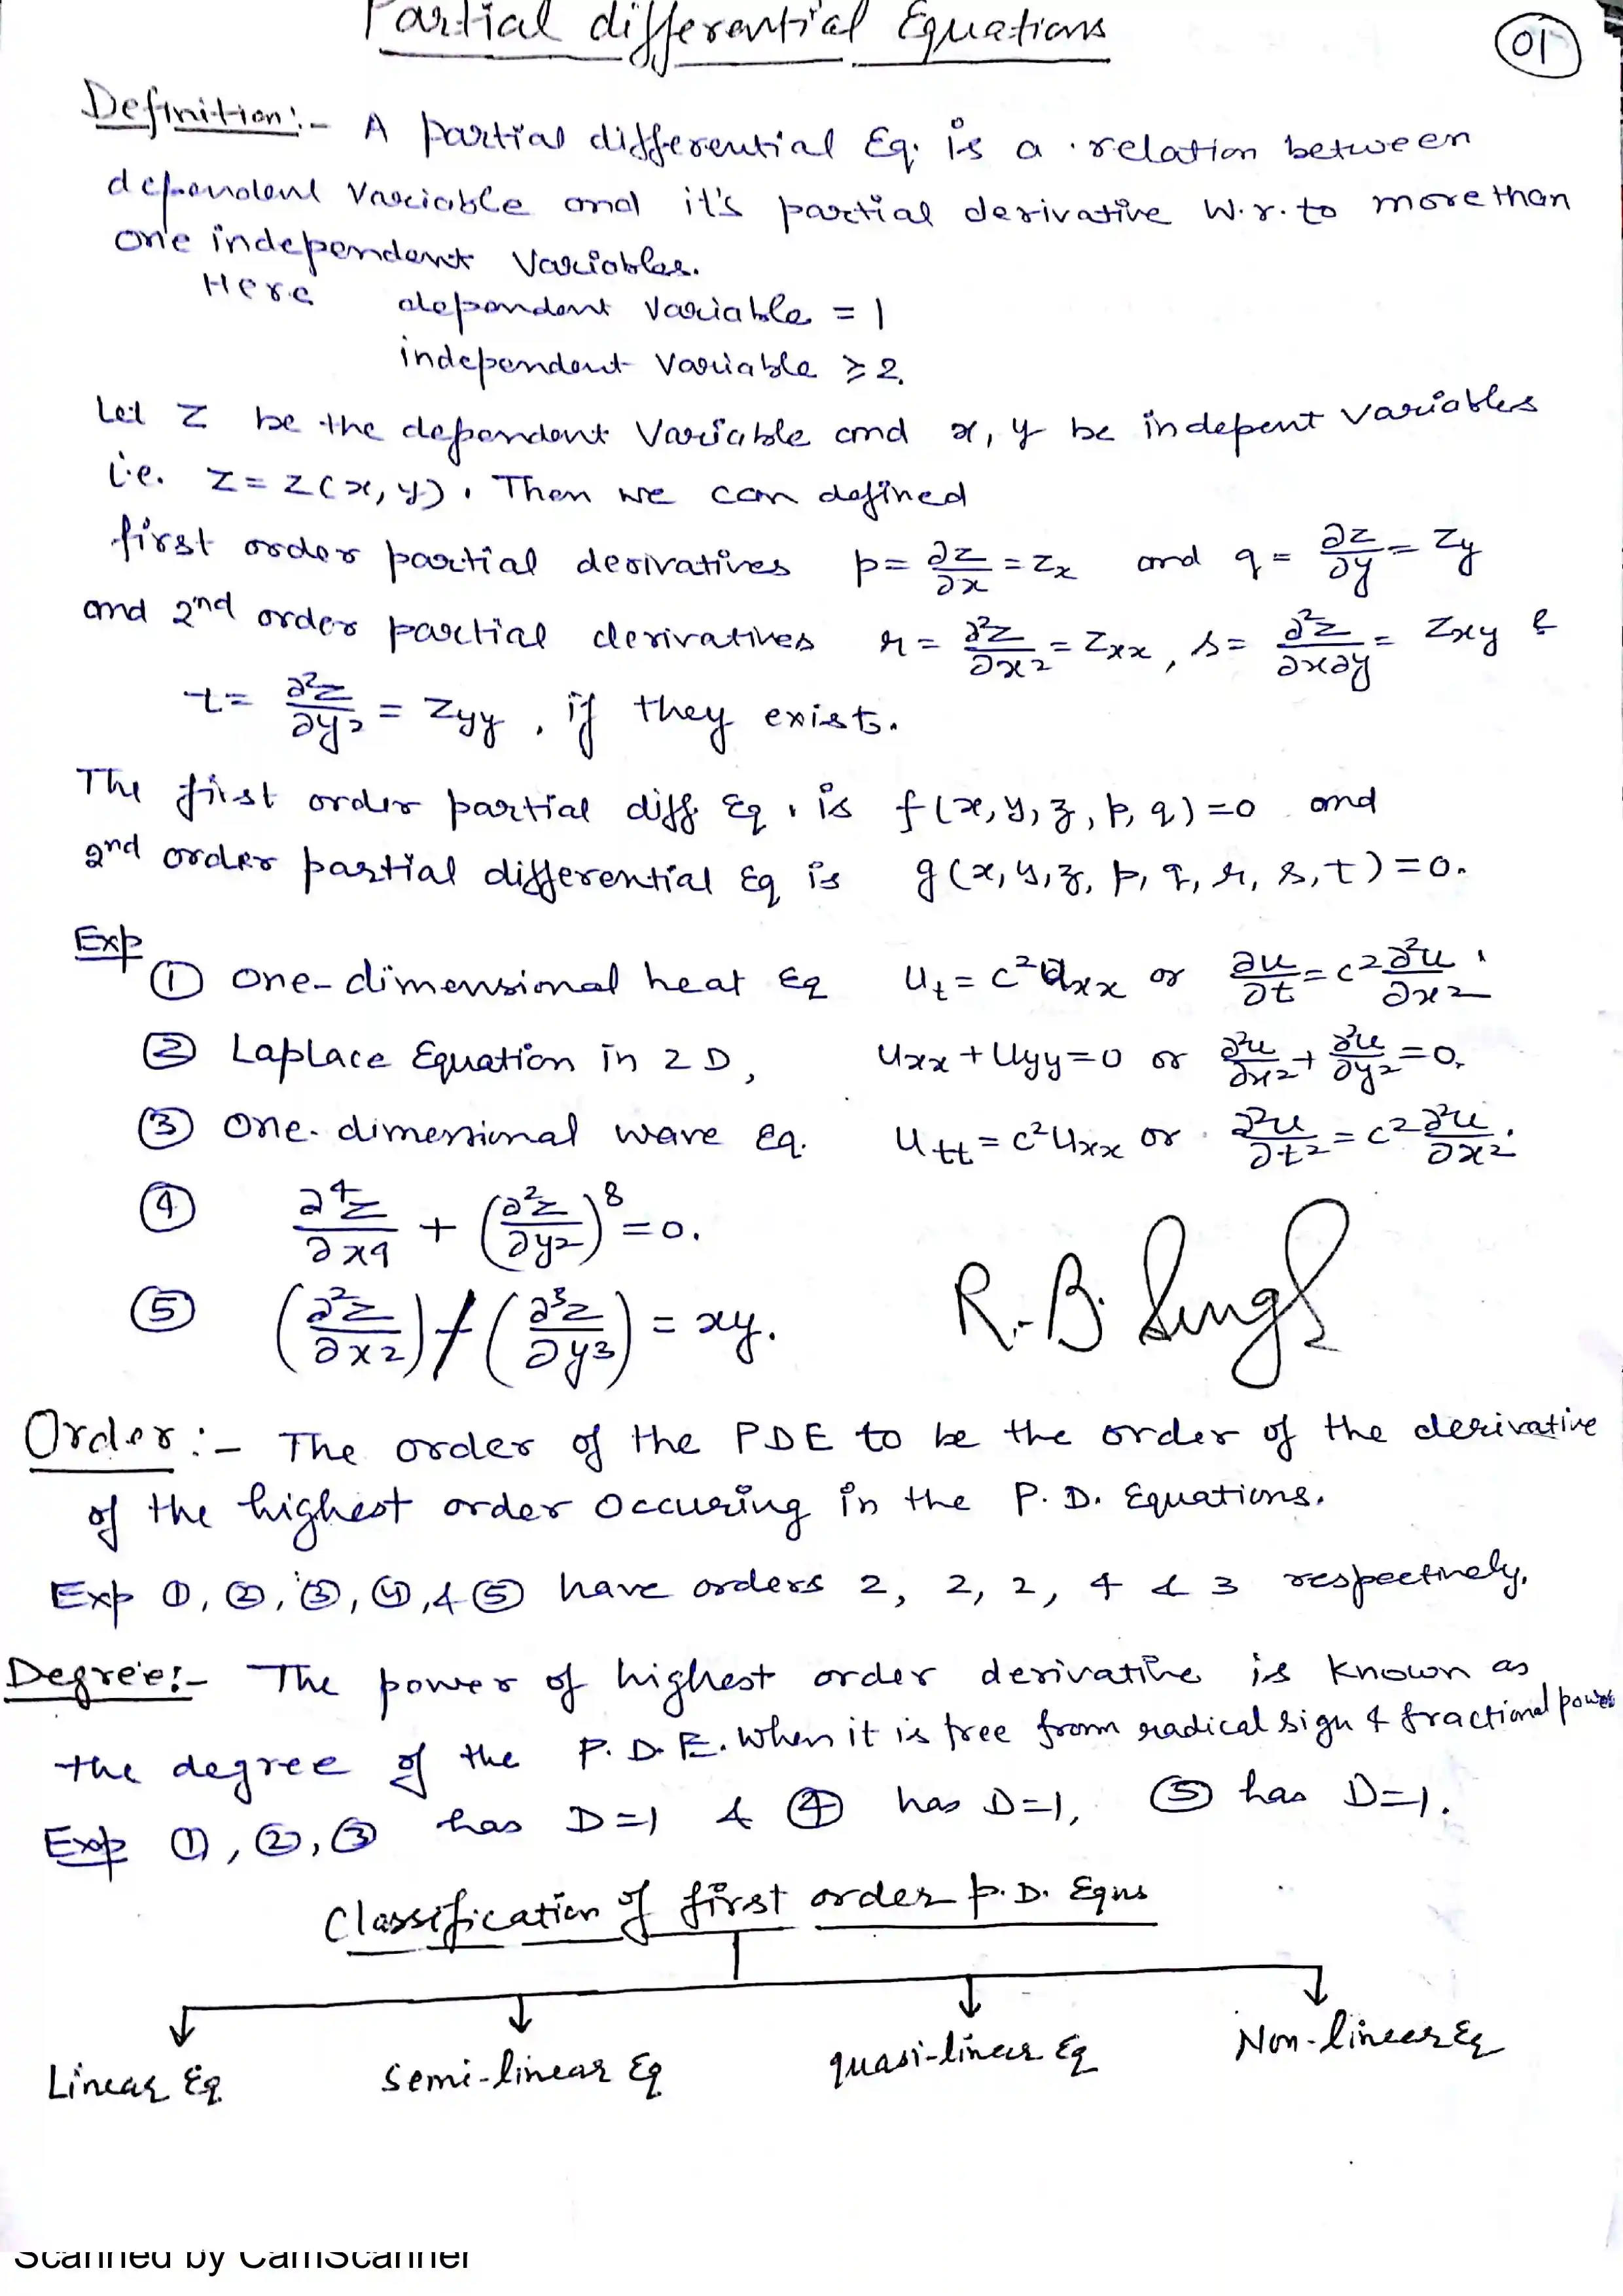 Partial differential Equations
01
Definition:- A partial differential Eq. is a relation between
dependent variable and it's partial derivative w.r.to more than
one independent variables.
Here dependent variable = 1
independent variable ≥ 2.
Let z be the dependent variable and x, y be indepent variables
i.e. z = z(x, y). Then we can defined
first order partial derivatives p = ∂z/∂x = z_x and q = ∂z/∂y = z_y
and 2nd order partial derivatives r = ∂²z/∂x² = z_xx, s = ∂²z/∂x∂y = z_xy &
t = ∂²z/∂y² = z_yy, if they exists.
The first order partial diff. Eq. is f(x, y, z, p, q) = 0 and
2nd order partial differential Eq is g(x, y, z, p, q, r, s, t) = 0.
Exp
① One-dimensional heat Eq u_t = c² u_xx or ∂u/∂t = c² ∂²u/∂x².
② Laplace Equation in 2D, u_xx + u_yy = 0 or ∂²u/∂x² + ∂²u/∂y² = 0.
③ One-dimensional wave Eq. u_tt = c² u_xx or ∂²u/∂t² = c² ∂²u/∂x².
④ ∂⁴z/∂x⁴ + (∂²z/∂y²)⁸ = 0.
⑤ (∂²z/∂x²) + (∂³z/∂y³) = xy.
R.B. Singh
Order:- The order of the PDE to be the order of the derivative
of the highest order occuring in the P.D. Equations.
Exp ①, ②, ③, ④, & ⑤ have orders 2, 2, 2, 4 & 3 respectively.
Degree:- The power of highest order derivative is known as
the degree of the P.D.E. when it is free from radical sign & fractional power
Exp ①, ②, ③ has D=1 & ④ has D=1, ⑤ has D=1.
Classification of first order P.D. Eqns
Linear Eq semi-linear Eq quasi-linear Eq Non-linear Eq
Scanned by CamScanner